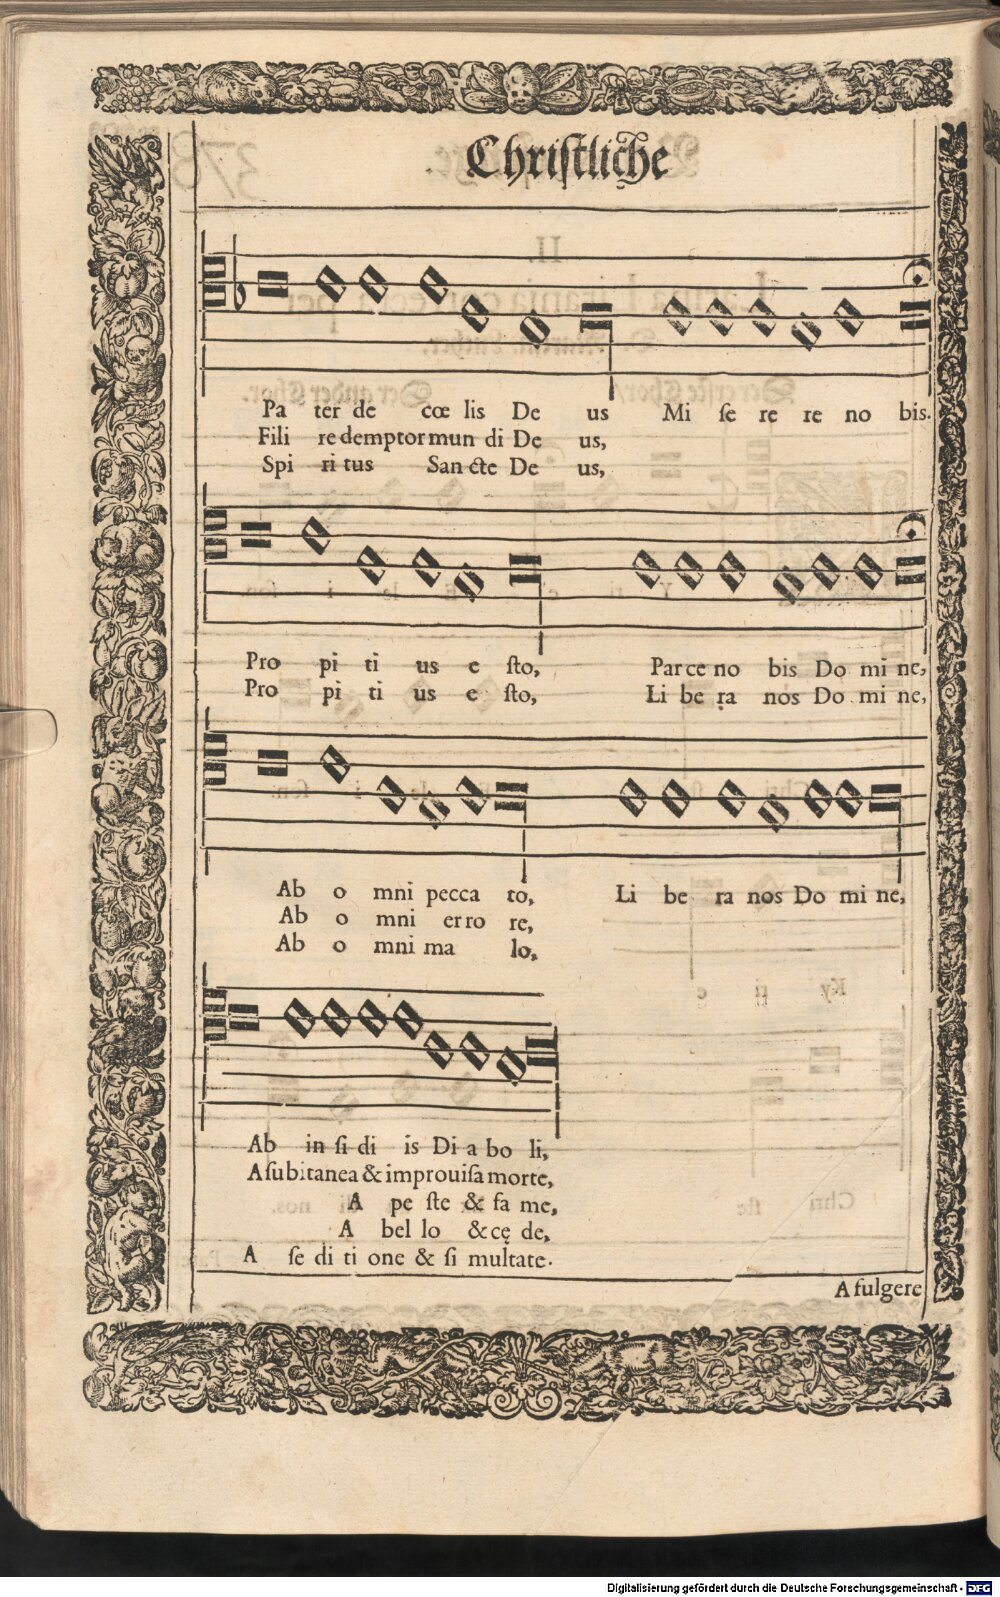 Chriſtliche
Pa ter de cœ lis De us Mi ſe re re no bis.
Fili redemptor mun di De us,
Spi ri tus San cte De us,
Pro pi ti us e ſto, Parce no bis Do mi ne,
Pro pi ti us e ſto, Li be ra nos Do mi ne,
Ab o mni pecca to, Li be ra nos Do mi ne,
Ab o mni er ro re,
Ab o mni ma lo,
Ab in ſi di is Di a bo li,
A ſubitanea & improuiſa morte,
A pe ſte & fa me,
A bel lo & cę de,
A ſe di ti one & ſi multate.
A fulgere
Digitalisierung gefördert durch die Deutsche Forschungsgemeinschaft - DFG